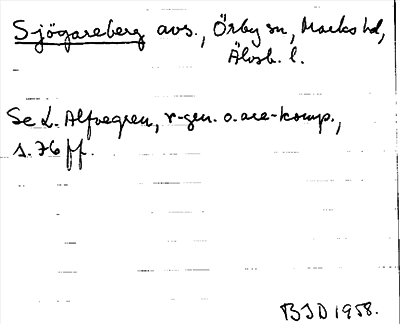 Sjögareberg avs., Örby sn, Marks hd,
Älvsb. l.
Se L. Alfvegren, r-gen. o. are-komp.,
s. 76 ff.
BJD 1958.